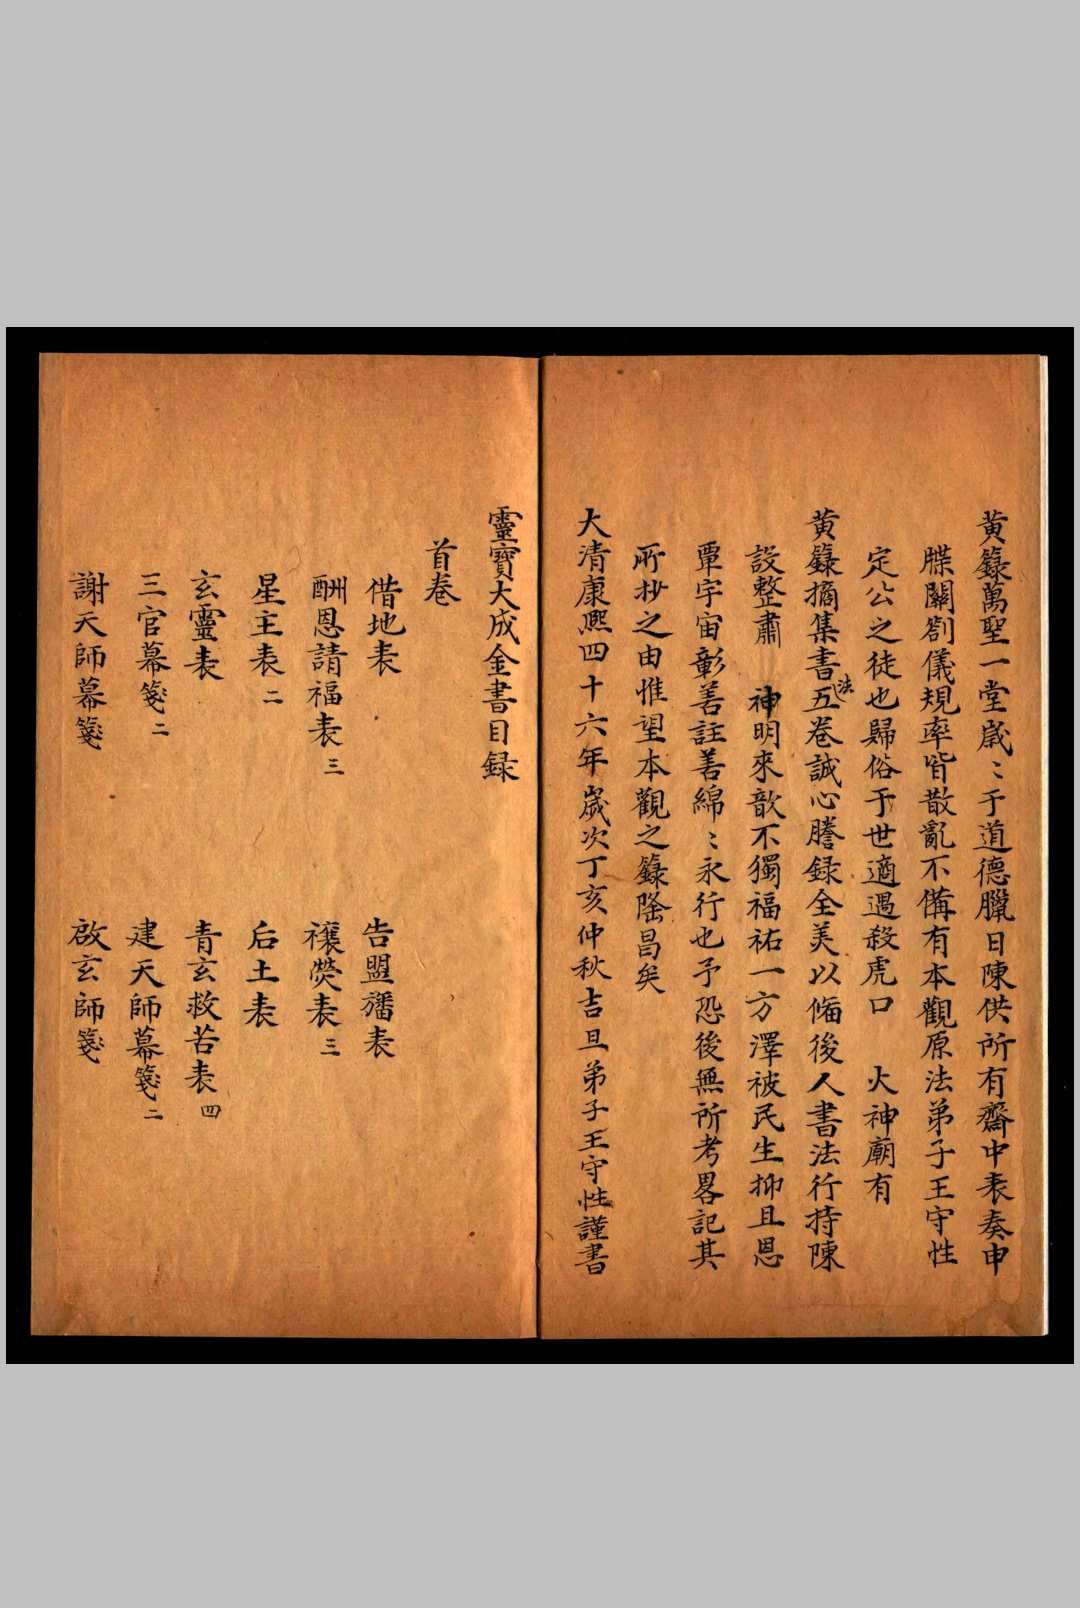 黄籙萬聖一堂嵗〻于道德臘日陳供所有齋中表奏申
牒關劄儀規率皆散亂不備有本觀原法弟子王守性
定公之徒也歸俗于世適遇殺虎口　火神廟有
黄籙摘集書法五卷誠心謄録全美以俻後人書法行持陳
設整肅　神明來歆不獨福祐一方澤被民生抑且恩
覃宇宙彰善註善綿〻永行也予恐後無所考畧記其
所抄之由惟望本觀之籙隆昌矣
大清康熙四十六年嵗次丁亥仲秋吉旦弟子王守性謹書
靈寶大成金書目録
首卷
借地表　告盟旛表
酬恩請福表三　禳熒表三
星主表二　后土表
玄靈表　青玄救苦表四
三官幕箋二　建天師幕箋二
謝天師幕箋　啟玄師箋